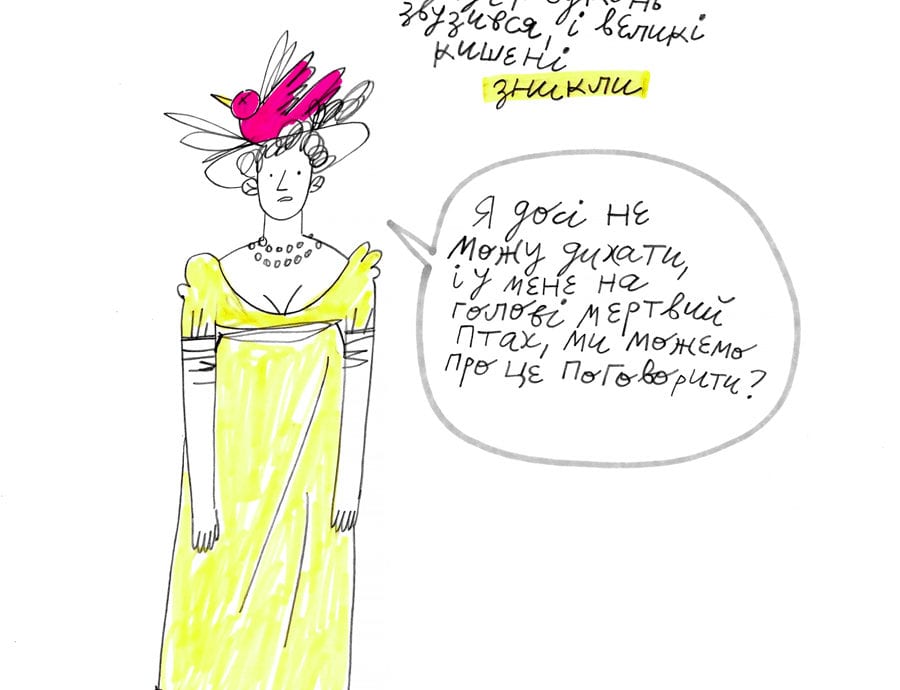 звузився, і великі
кишені
зникли
Я досі не
можу дихати,
і у мене на
голові мертвий
птах, ми можемо
про це поговорити?